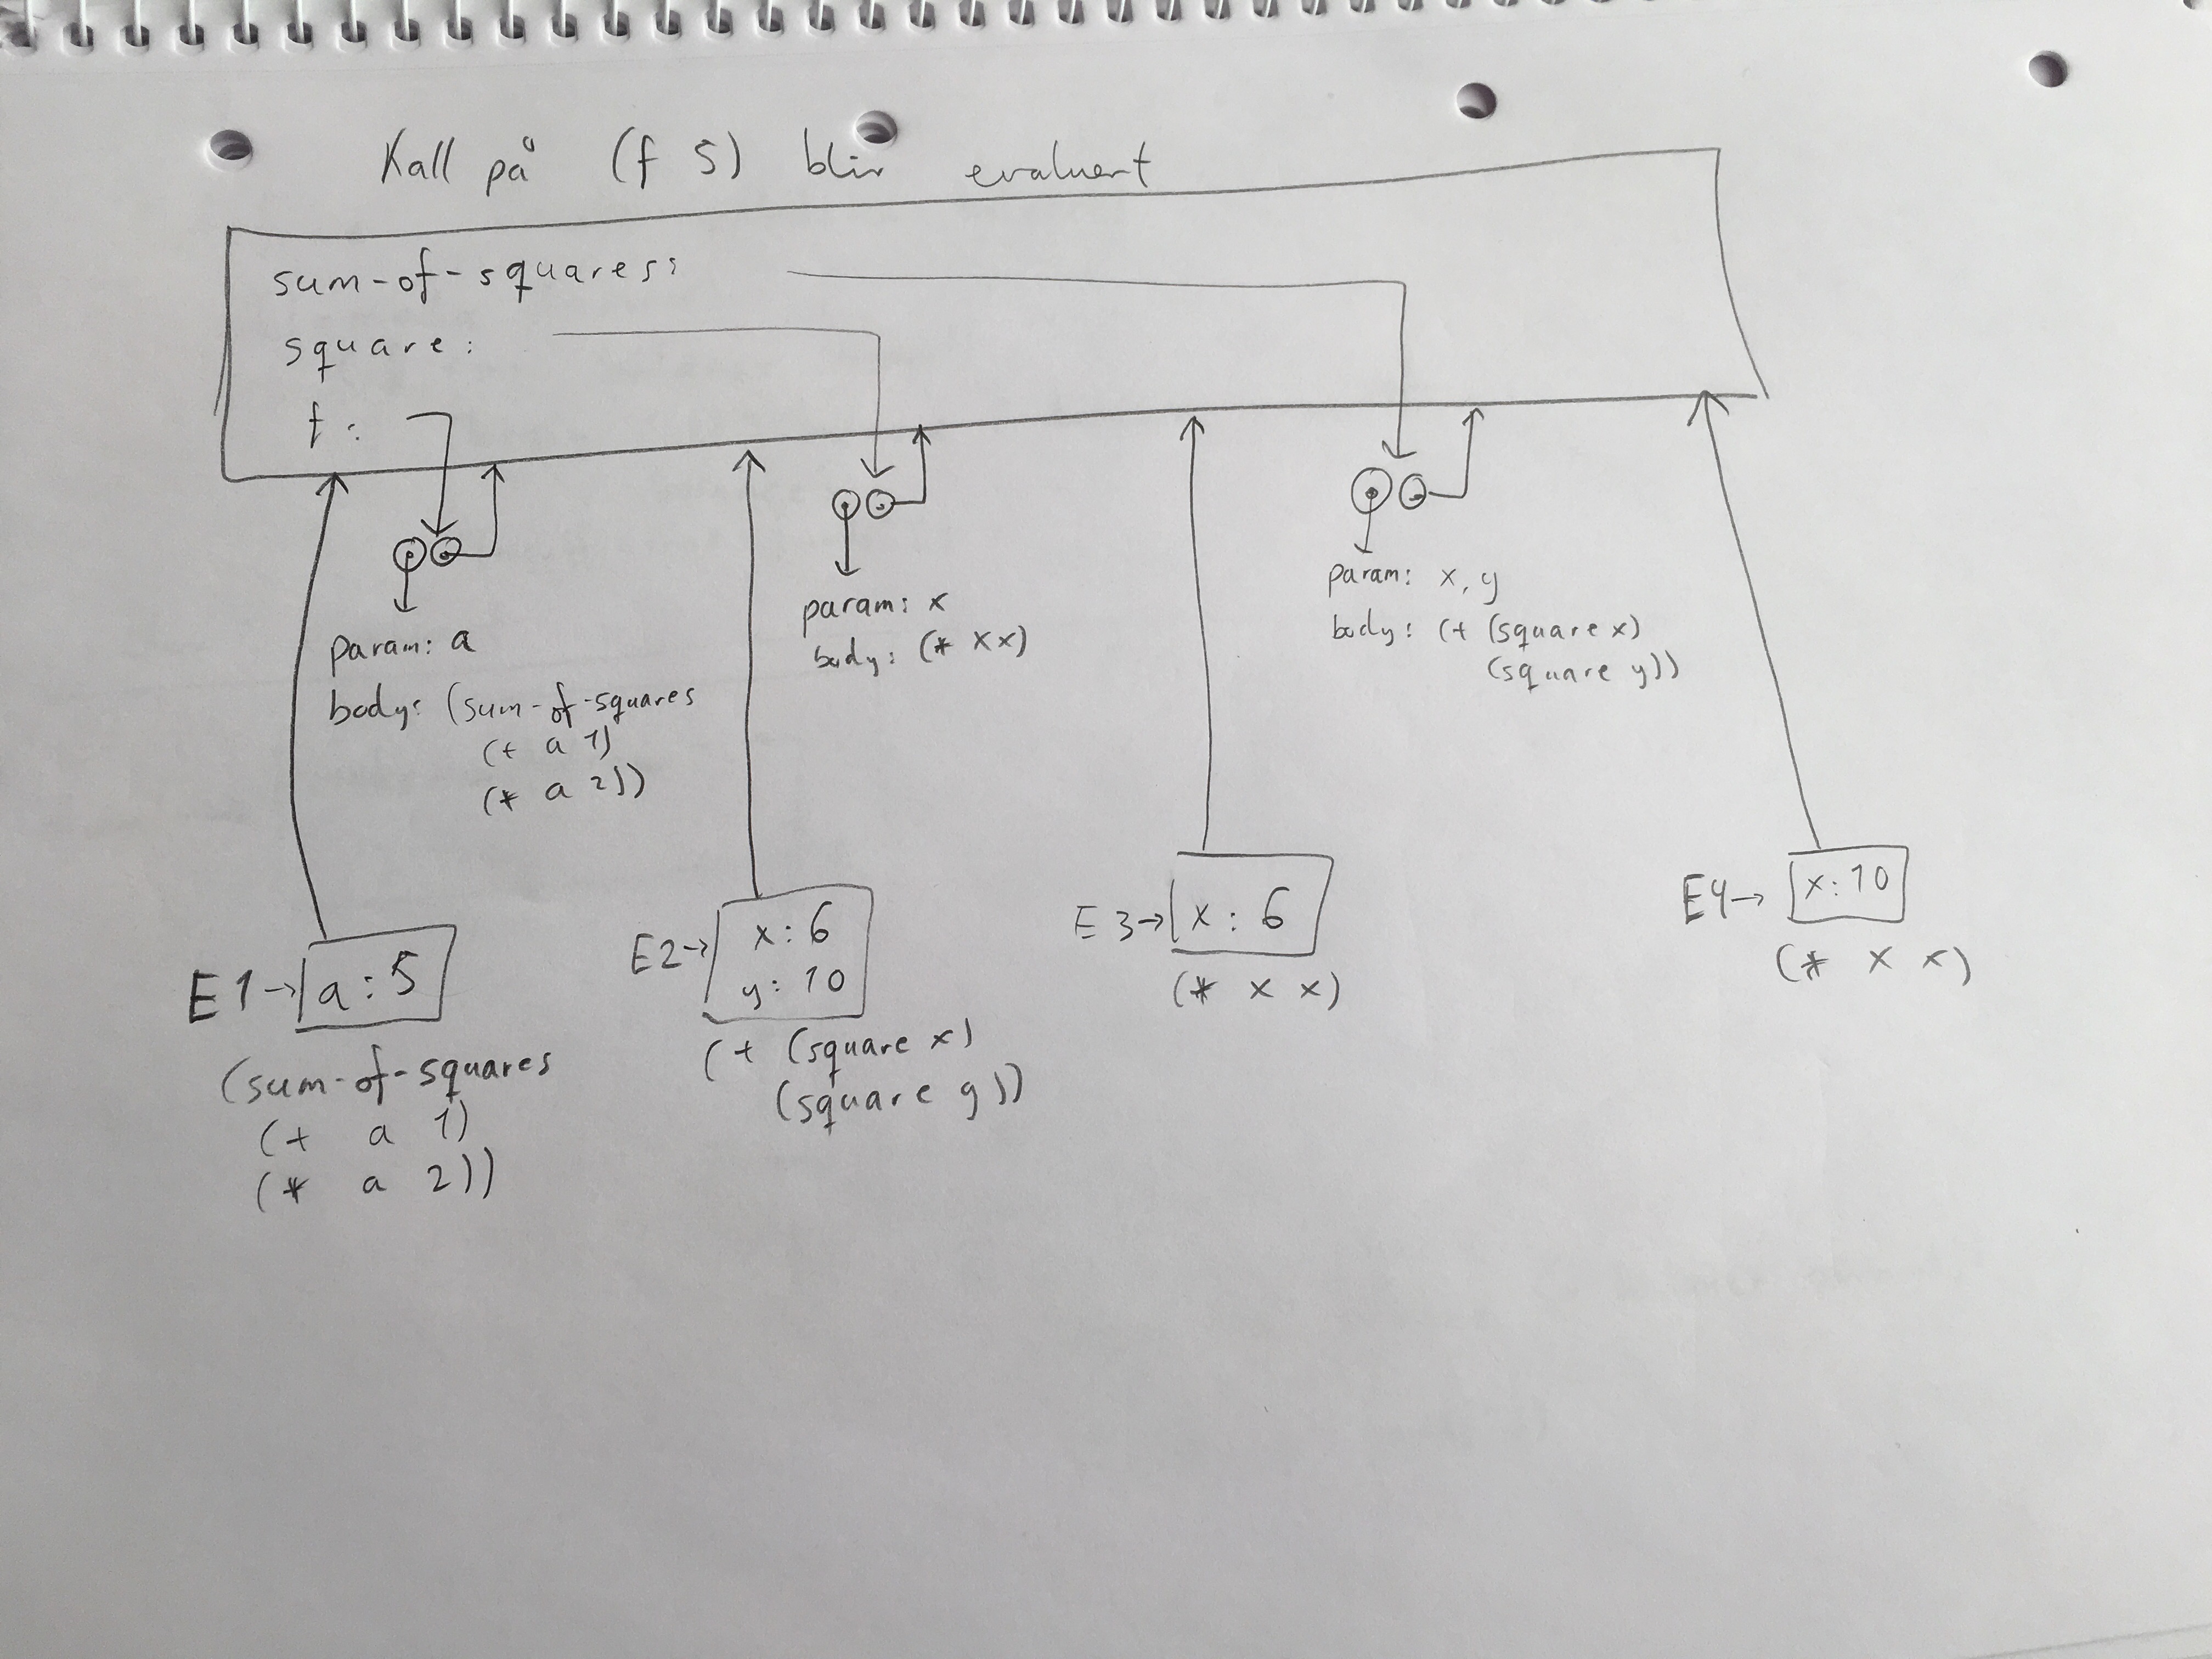 Kall på (f 5) blir evaluert
sum-of-squares:
square:
f:
param: a
body: (sum-of-squares
(+ a 1)
(* a 2))
param: x
body: (* x x)
param: x, y
body: (+ (square x)
(square y))
E1→ a: 5
(sum-of-squares
(+ a 1)
(* a 2))
E2→ x: 6
y: 10
(+ (square x)
(square y))
E3→ x: 6
(* x x)
E4→ x: 10
(* x x)